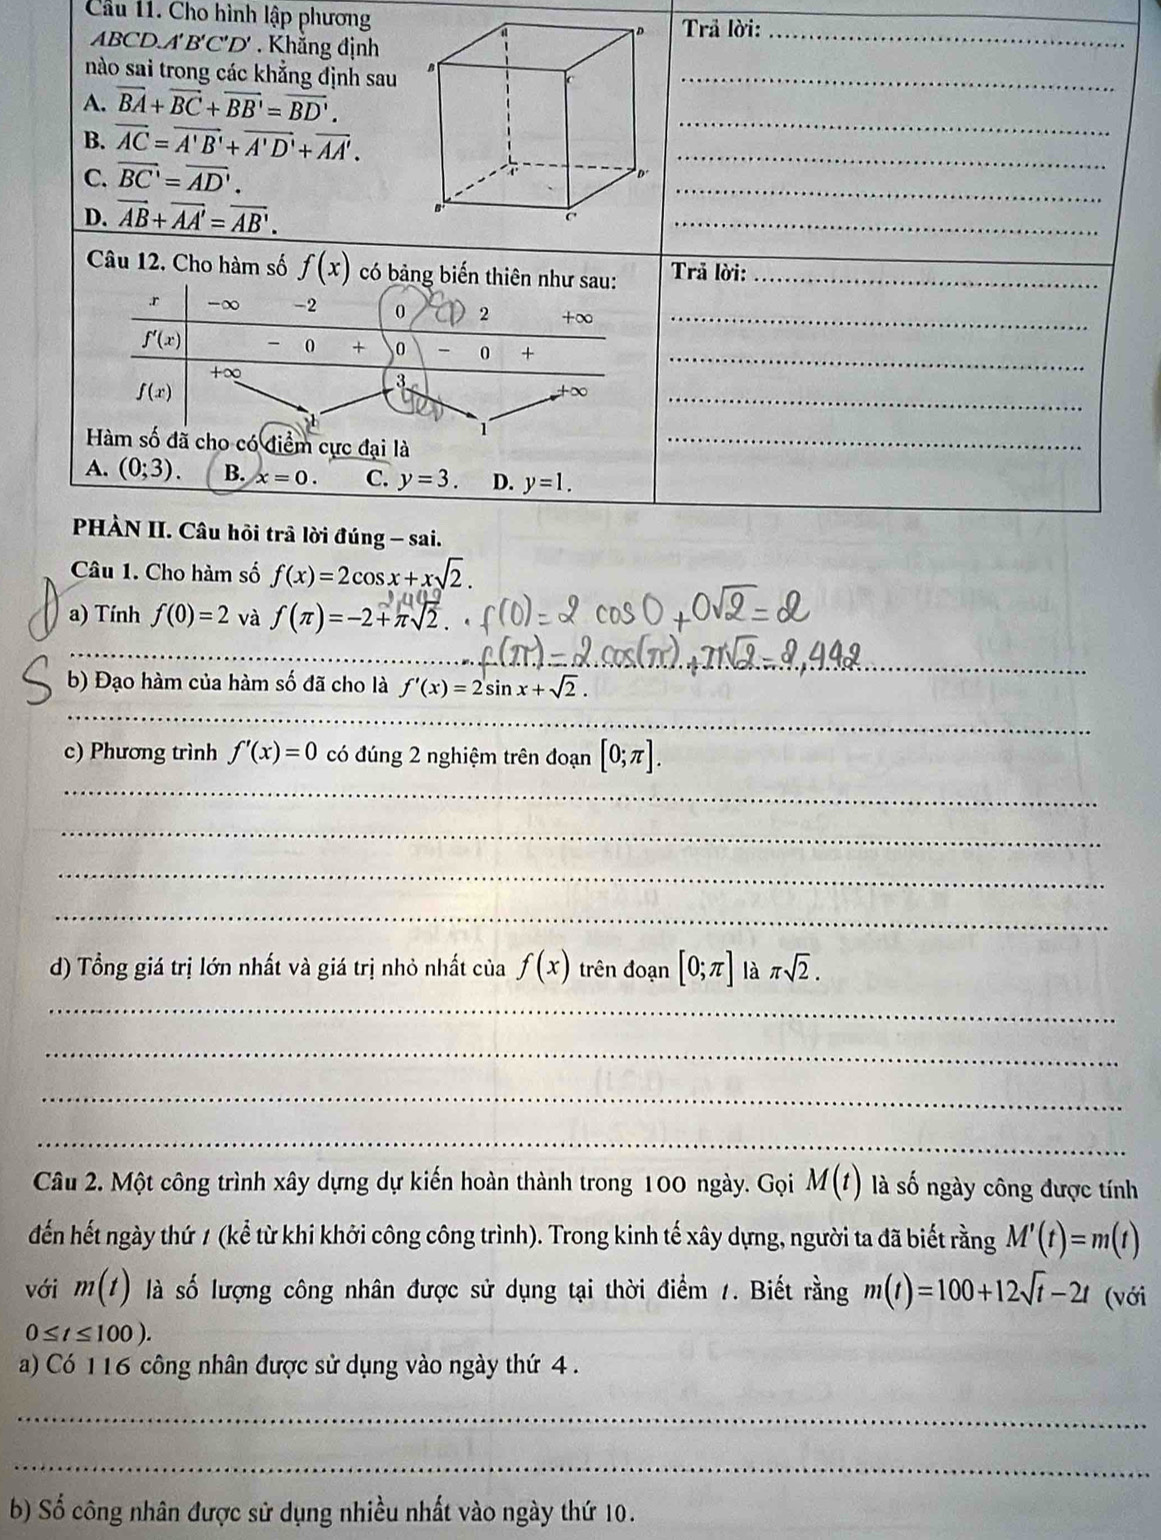 Câu 11. Cho hình lập phương
ABCD.A'B'C'D' . Khẳng định
nào sai trong các khẳng định sau
A. BA + BC + BB' = BD'.
B. AC = A'B' + A'D' + AA'.
C. BC' = AD'.
D. AB + AA' = AB'.
D
B
C
D'
B'
C'
Trả lời:
Câu 12. Cho hàm số f(x) có bảng biến thiên như sau:
x -∞ -2 0 2 +∞
f'(x) - 0 + 0 - 0 +
f(x) +∞ 1 3 1 +∞
Hàm số đã cho có điểm cực đại là
A. (0;3). B. x = 0. C. y = 3. D. y = 1.
Trả lời:
PHẦN II. Câu hỏi trả lời đúng – sai.
Câu 1. Cho hàm số f(x) = 2cos x + x√2.
2,442
Đ a) Tính f(0) = 2 và f(π) = -2 + π√2. f(0) = 2 cos 0 + 0√2 = 2
f(π) = 2.cos(π) + π√2 = 2,442
S b) Đạo hàm của hàm số đã cho là f'(x) = 2sin x + √2.
c) Phương trình f'(x) = 0 có đúng 2 nghiệm trên đoạn [0;π].
d) Tổng giá trị lớn nhất và giá trị nhỏ nhất của f(x) trên đoạn [0;π] là π√2.
Câu 2. Một công trình xây dựng dự kiến hoàn thành trong 100 ngày. Gọi M(t) là số ngày công được tính
đến hết ngày thứ t (kể từ khi khởi công công trình). Trong kinh tế xây dựng, người ta đã biết rằng M'(t) = m(t)
với m(t) là số lượng công nhân được sử dụng tại thời điểm t. Biết rằng m(t) = 100 + 12√t - 2t (với
0 ≤ t ≤ 100 ).
a) Có 116 công nhân được sử dụng vào ngày thứ 4 .
b) Số công nhân được sử dụng nhiều nhất vào ngày thứ 10.